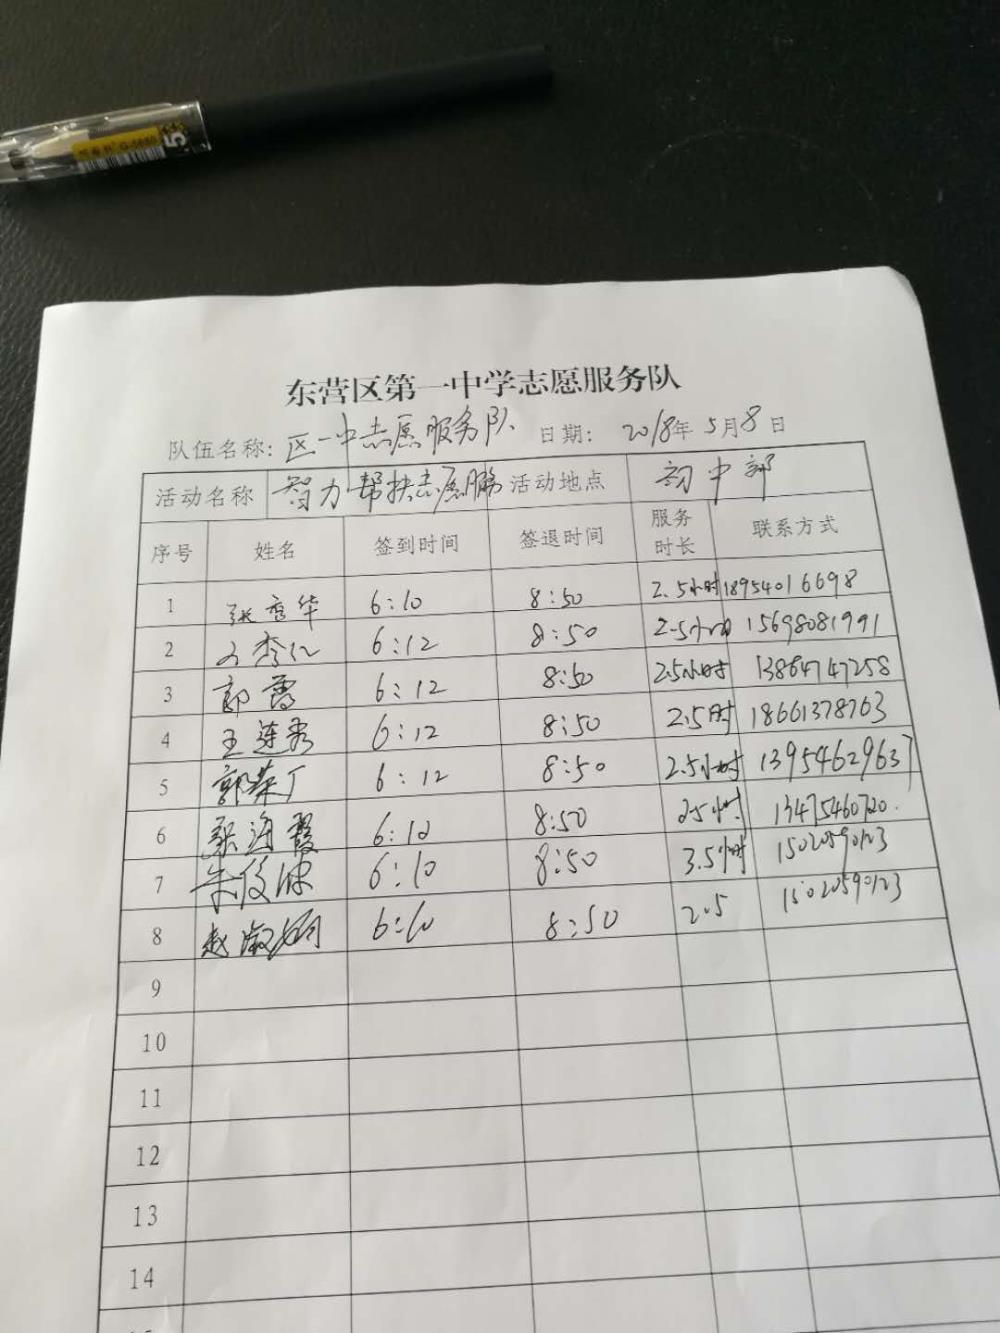 G-5680
5
东营区第一中学志愿服务队
队伍名称: 区一中志愿服务队 日期: 2018年5月8日
活动名称 智力帮扶志愿服务 活动地点 初中部
序号 姓名 签到时间 签退时间 服务时长 联系方式
1 张秀华 6:10 8:50 2.5小时 18954016698
2 6:12 8:50 2.5小时 15698081991
3 郭霞 6:12 8:50 2.5小时 13864747258
4 王连秀 6:12 8:50 2.5时 18661378763
5 郭荣广 6:12 8:50 2.5小时 13954629637
6 海霞 6:10 8:50 2.5小时 13475460720.
7 朱俊波 6:10 8:50 3.5小时 15020590123
8 赵淑娟 6:10 8:50 2.5 15020590123
9
10
11
12
13
14